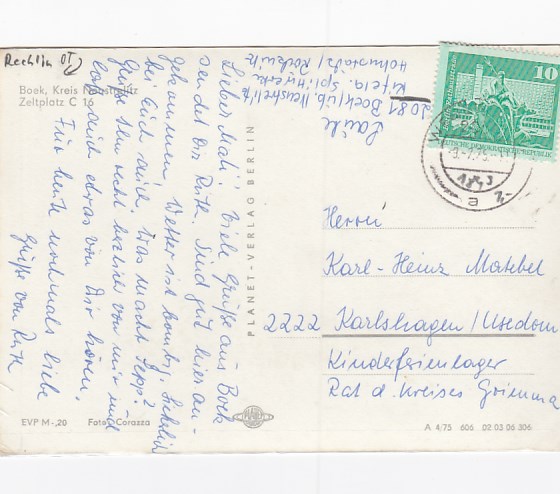 Rechlin OT
Boek, Kreis Neustrelitz
Zeltplatz C 16
Lieber Mati! Viele Grüße aus Boek
sendet Dir Rute. Sind gut hier an-
gekommen. Wetter ist bombig. Sicherlich
bei Euch auch. Was macht Sepp?
Grüße ihn recht herzlich von mir und
laß mich etwas von Dir hören.
Für heute nochmals liebe
Grüße von Rute
EVP M -,20 Foto: Corazza
PLANET-VERLAG BERLIN
2081 Boek üb. Neustrelitz
10
DEUTSCHE DEMOKRATISCHE REPUBLIK
a
Herrn
Karl-Heinz Matebel
2222 Karlshagen/Usedom
Kinderferienlager
Rat d. Kreises Grimma
A 4/75 606 02 03 06 306